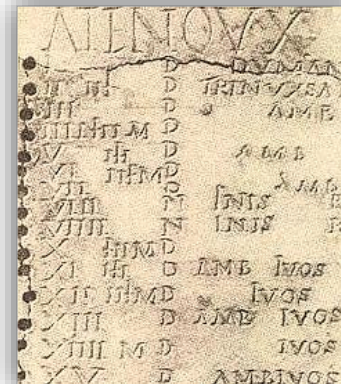 ATENOVX
D DVMAN
II D TRINVXSA
III D AMB
IIII M D
V D AMB
VI M D
VII D AMB
VIII N INIS R
VIIII N INIS R
X M D
XI D AMB IVOS
XII M D IVOS
XIII D AMB IVOS
XIIII M D IVOS
XV D AMB IVOS